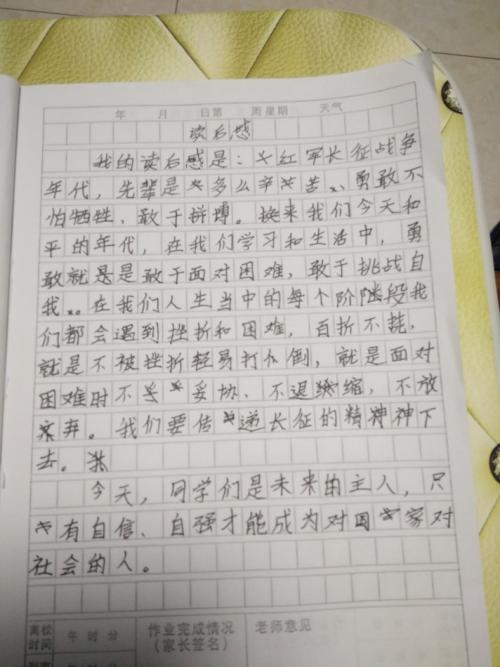 年 月 日第 周星期 天气
读后感
我的读后感是：红军长征战争
年代，先辈是多么辛苦、勇敢不
怕牺牲、敢于拼搏。换来我们今天和
平的年代，在我们学习和生活中，勇
敢就是是敢于面对困难，敢于挑战自
我。在我们人生当中的每个阶段我
们都会遇到挫折和困难，百折不挠，
就是不被挫折轻易打倒，就是面对
困难时不妥协、不退缩，不放
弃。我们要传递长征的精神神下
去。
今天，同学们是未来的主人，只
有自信、自强才能成为对国家对
社会的人。
离校时间 年 时 分 作业完成情况（家长签名） 老师意见